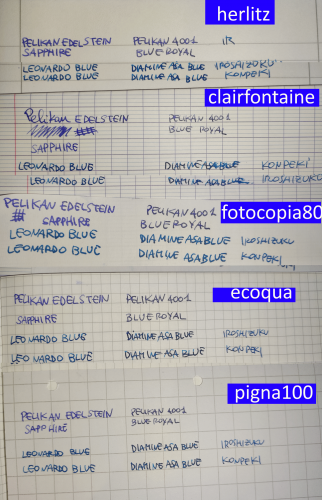 herlitz
PELIKAN EDELSTEIN PELIKAN 4001 IR
SAPPHIRE BLUE ROYAL
LEONARDO BLUE DIAMINE ASA BLUE IROSHIZUKU
LEONARDO BLUE DIAMINE ASA BLUE KONPEKI
clairfontaine
Pelikan EDELSTEIN PELIKAN 4001
BLUE ROYAL
SAPPHIRE
LEONARDO BLUE DIAMINE ASA BLUE KONPEKI
LEONARDO BLUE DIAMINE ASA BLUE IROSHIZUKU
fotocopia80
PELIKAN EDELSTEIN PELIKAN 4001
# SAPPHIRE BLUE ROYAL
LEONARDO BLUE DIAMINE ASA BLUE IROSHIZUKU
LEONARDO BLUE DIAMINE ASA BLUE KONPEKI
ecoqua
PELIKAN EDELSTEIN PELIKAN 4001
SAPPHIRE BLUE ROYAL
LEONARDO BLUE DIAMINE ASA BLUE IROSHIZUKU
LEONARDO BLUE DIAMINE ASA BLUE KONPEKI
pigna100
PELIKAN EDELSTEIN PELIKAN 4001
SAPPHIRE BLUE ROYAL
LEONARDO BLUE DIAMINE ASA BLUE IROSHIZUKU
LEONARDO BLUE DIAMINE ASA BLUE KONPEKI